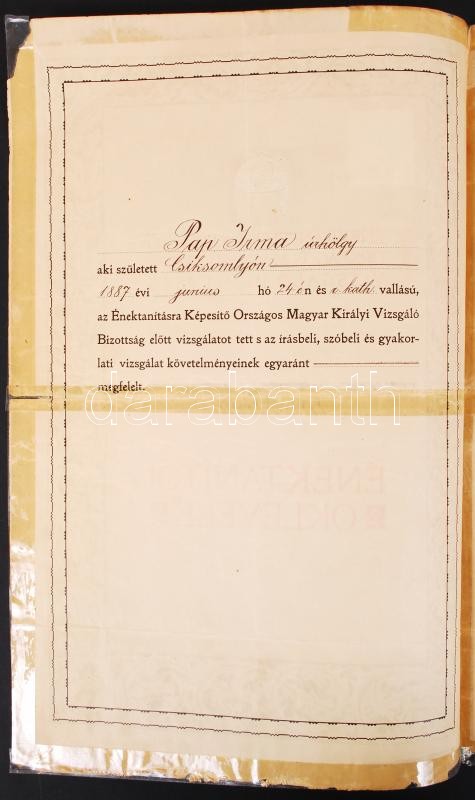 Pap Irma úrhölgy
aki született Csiksomlyón
1887 évi junius hó 24 én és r. kath. vallású,
az Énektanításra Képesítő Országos Magyar Királyi Vizsgáló
Bizottság előtt vizsgálatot tett s az írásbeli, szóbeli és gyakor-
lati vizsgálat követelményeinek egyaránt
megfelelt.
darabanth
ÉNEKTANÍTÓI
OKLEVÉL